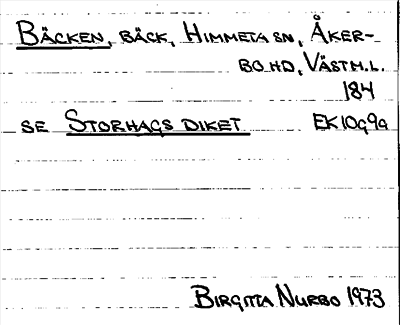 BÄCKEN, BÄCK, HIMMETA SN, ÅKER-
BO HD, VÄSTM.L.
184
SE STORHAGSDIKET EK10g9a
BIRGITTA NURBO 1973